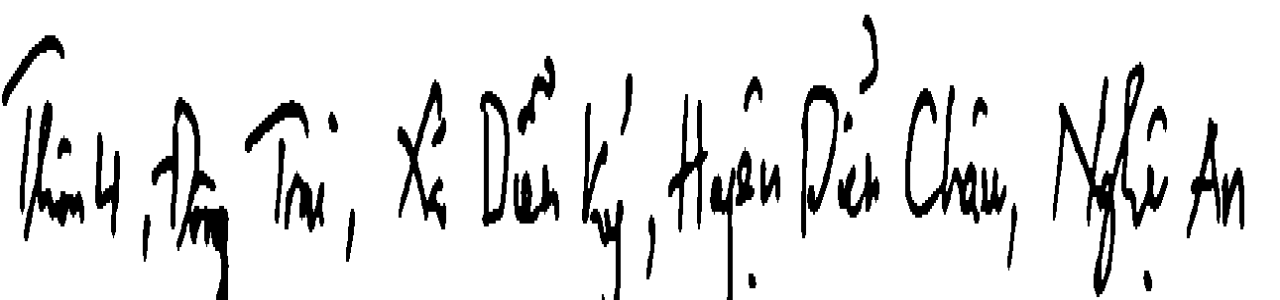 Thôn 4, Đông Trai, Xã Diễn Kỷ, Huyện Diễn Châu, Nghệ An